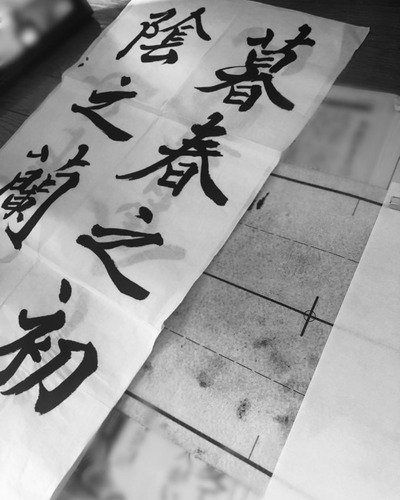 暮春之初
陰之蘭